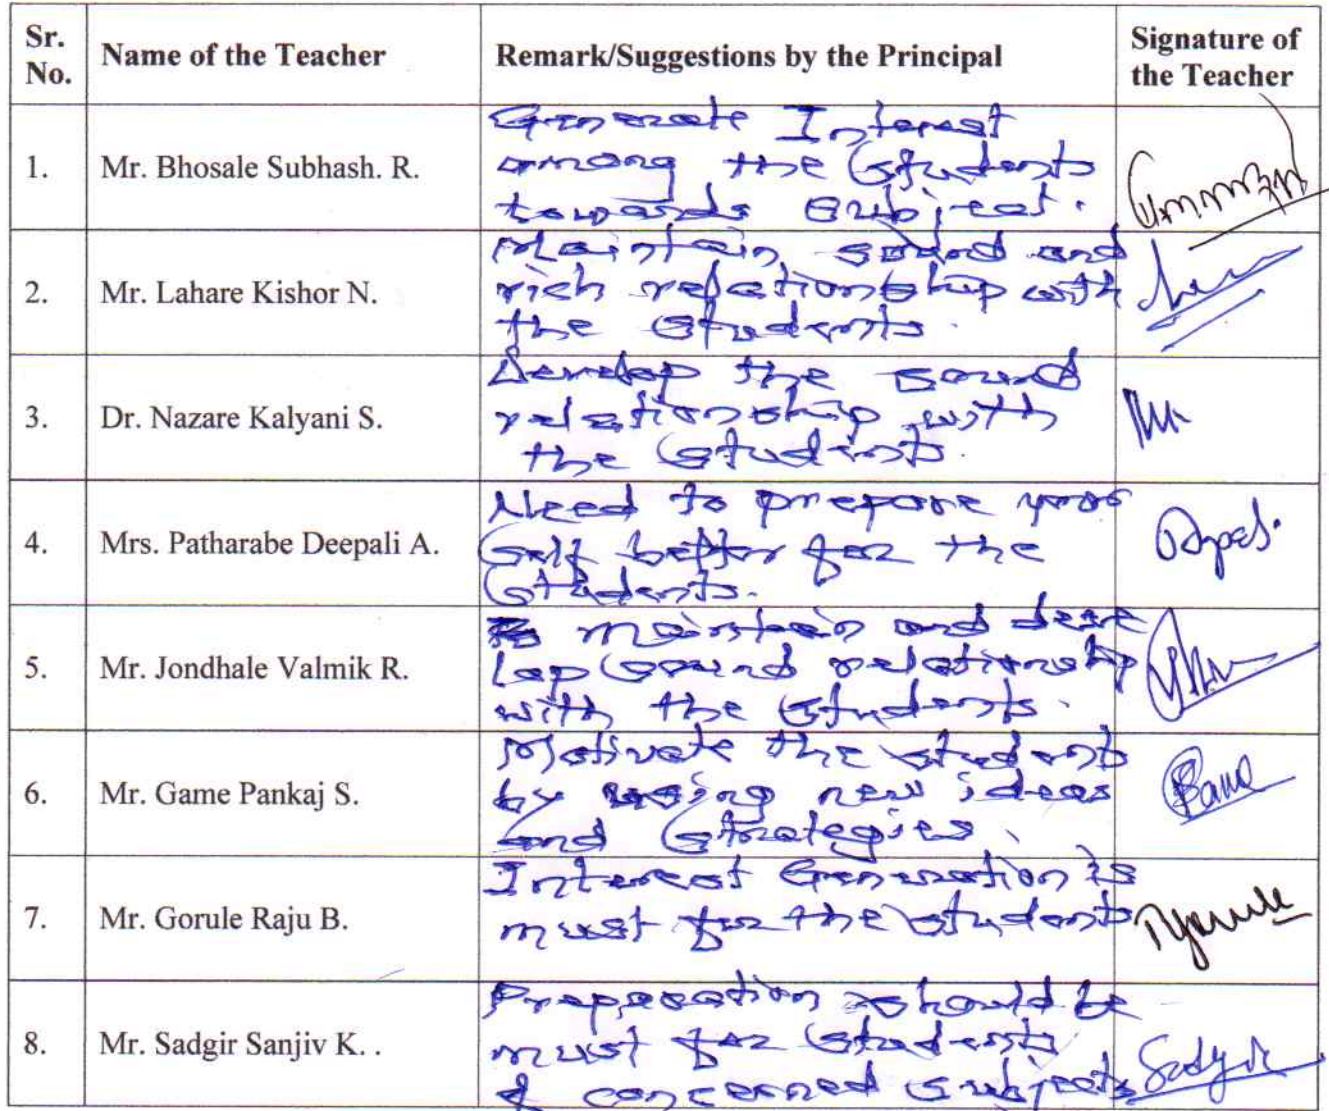 Sr. No. Name of the Teacher Remark/Suggestions by the Principal Signature of the Teacher
1. Mr. Bhosale Subhash. R.
Generate Interest
among the Students
towards Subject.
2. Mr. Lahare Kishor N.
Maintain sound and
rich relationship with
the Students.
3. Dr. Nazare Kalyani S.
Develop the sound
relationship with
the Students.
4. Mrs. Patharabe Deepali A.
Need to prepare your
Self better for the
Students.
5. Mr. Jondhale Valmik R.
maintain and deve
lop Sound relationship
with the Students.
6. Mr. Game Pankaj S.
Motivate the students
by using new ideas
and Strategies.
7. Mr. Gorule Raju B.
Interest Generation is
must for the students
8. Mr. Sadgir Sanjiv K. .
Preparation should be
must for Students
& concerned Subjects
Sadgir